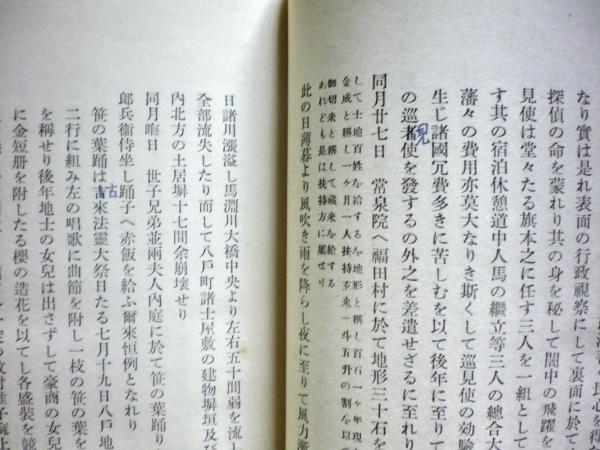 なり實は是れ表面の行政視察にして裏面に於て
探偵の命を蒙れり其の身を秘して闇中の飛躍を
見使は堂々たる旗本之に任す三人を一組として
す其の宿泊休憩道中人馬の繼立等三人の總合大
藩々の費用亦莫大なりき斯くして巡見使の効驗
生じ諸國冗費多きに苦しむを以て後年に至りて
の巡者使を發するの外之を差遣せざるに至れり
見
同月廿七日　常泉院へ福田村に於て地形三十石を
して土地百姓を給するを地形と稱し百石一ヶ年現
金成と稱し一ヶ月一人扶持玄米一斗五升の割を以
御切米と稱して藏米を給する
あれども是は扶持方に屬せり
此の日薄暮より風吹き雨を降らし夜に至りて風力漸
日諸川漲溢し馬淵川大橋中央より左右五十間弱を流
全部流失したり而して八戸町諸士屋敷の建物塀垣及
內北方の土居塀十七間余崩壞せり
同月晦日　世子兄弟並兩夫人內庭に於て笹の葉踊り
郎兵衞侍坐し踊子へ赤飯を給ふ爾來恒例となれり
笹の葉踊は吉來法靈大祭日たる七月十九日八戸地
古
二行に組み左の唱歌に曲節を附し一枝の笹の葉を
を稱せり後年地士の女兒は出さずして豪商の女兒
に金短册を附したる櫻の造花を以てし各盛裝を競